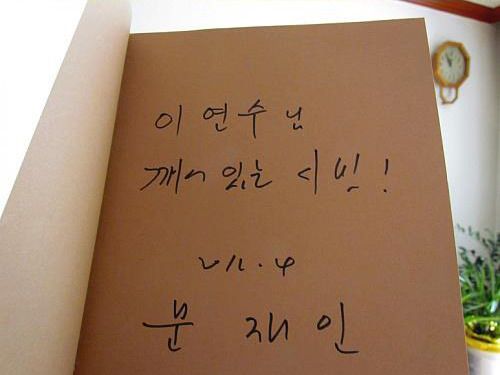 이연수님
깨어 있는 시민!
2012. 4
문재인